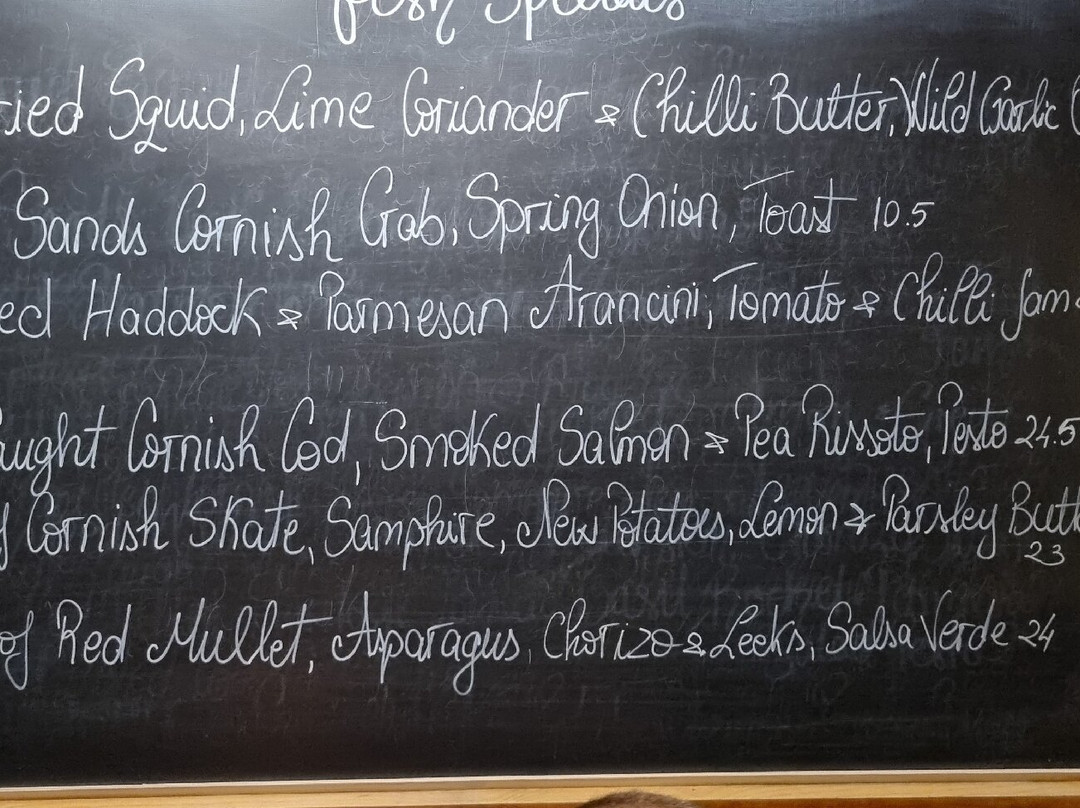 Fish Specials
ried Squid, Lime Coriander & Chilli Butter, Wild Garlic
Sands Cornish Crab, Spring Onion, Toast 10.5
ed Haddock & Parmesan Arancini, Tomato & Chilli Jam
aught Cornish Cod, Smoked Salmon & Pea Rissoto, Pesto 24.5
Cornish Skate, Samphire, New Potatoes, Lemon & Parsley Butt
23
of Red Mullet, Asparagus, Chorizo & Leeks, Salsa Verde 24